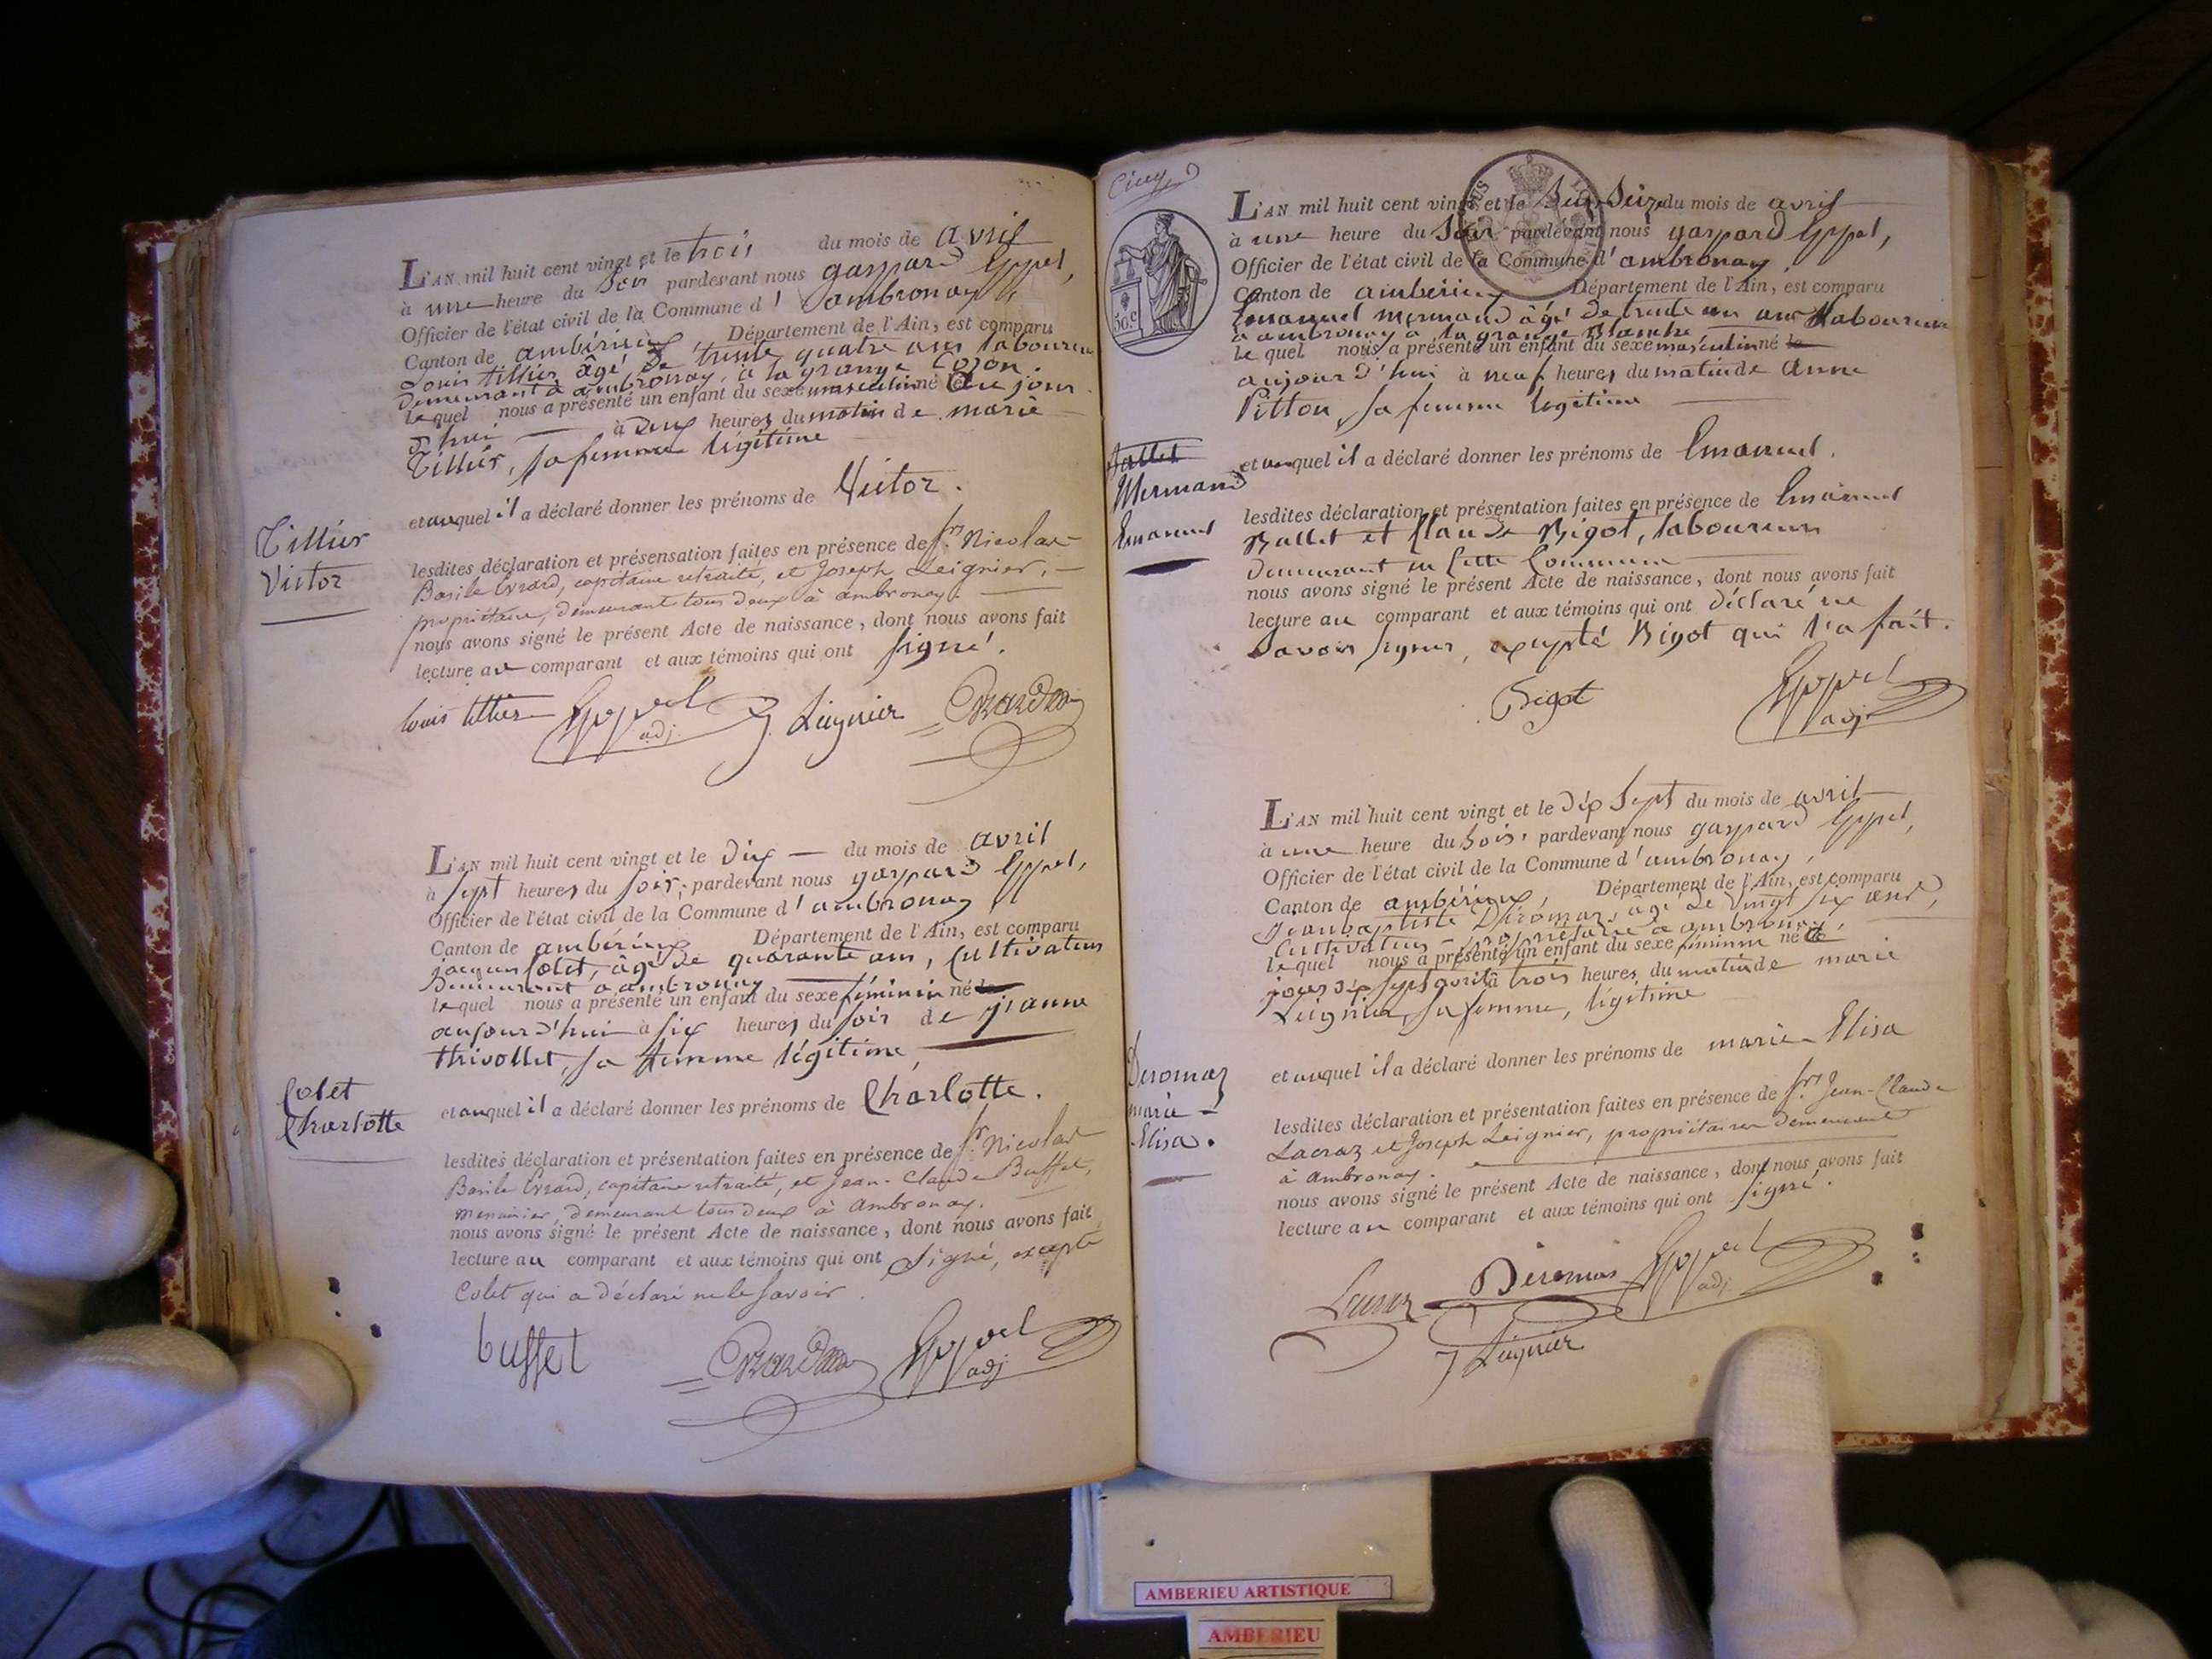 L'AN mil huit cent vingt et le trois du mois de avril
à une heure du soir pardevant nous gaspard Gppel,
Officier de l'état civil de la Commune d'ambronay
Canton de ambérieux, Département de l'Ain, est comparu
Louis tillier âgé de trente quatre ans laboureur
demeurant à ambronay, à la grange Cozon.
lequel nous a présenté un enfant du sexe masculin né au jour
d'hui à deux heures du matin de marie
Tillier, sa femme légitime
et auquel il a déclaré donner les prénoms de Victor.
Tillier
Victor
lesdites déclaration et présensation faites en présence de sr. Nicolas
Basile Evrard, capitaine retraité, et Joseph Leignier,
propriétaire, demeurant tous deux à ambronay.
nous avons signé le présent Acte de naissance, dont nous avons fait
lecture au comparant et aux témoins qui ont signé.
louis tillier adj. J. Leignier
L'AN mil huit cent vingt et le dix du mois de avril
à sept heures du soir, pardevant nous gaspard Gppel,
Officier de l'état civil de la Commune d'ambronay
Canton de ambérieux Département de l'Ain, est comparu
jacques Colet, âgé de quarante ans, Cultivateur
demeurant a ambronay
lequel nous a présenté un enfant du sexe féminin né le
aujourd'hui à six heures du soir de jeanne
thivollet, sa femme légitime,
Colet
Charlotte
et auquel il a déclaré donner les prénoms de Charlotte.
lesdites déclaration et présentation faites en présence de sr. Nicolas
Basile Evrard, capitaine retraité, et Jean-Claude Buffet,
menuisier, demeurant tous deux à Ambronay.
nous avons signé le présent Acte de naissance, dont nous avons fait
lecture au comparant et aux témoins qui ont signé, excepté
Colet qui a déclaré ne le savoir.
buffet adj.
50 c
L'AN mil huit cent vingt et le Seize du mois de avril
à une heure du soir pardevant nous gaspard Gppel,
Officier de l'état civil de la Commune d'ambronay,
Canton de ambérieux Département de l'Ain, est comparu
Emanuel mermand âgé de trente un ans laboureur
à ambronay à la grange Blanche
lequel nous a présenté un enfant du sexe masculin né le
aujourd'hui à neuf heures du matin de Anne
Pitton, sa femme légitime
Mermand
Emanuel
et auquel il a déclaré donner les prénoms de Emanuel.
lesdites déclaration et présentation faites en présence de Emanuel
Ballet et Claude Bigot, laboureurs
demeurant en Cette Commune
nous avons signé le présent Acte de naissance, dont nous avons fait
lecture au comparant et aux témoins qui ont déclaré ne
savoir signer, excepté Bigot qui l'a fait.
Bigot adj.
L'AN mil huit cent vingt et le dix sept du mois de avril
à une heure du soir, pardevant nous gaspard Gppel,
Officier de l'état civil de la Commune d'ambronay,
Canton de ambérieux, Département de l'Ain, est comparu
Jean baptiste Deromas, âgé de vingt six ans,
Cultivateur propriétaire a ambronay
lequel nous a présenté un enfant du sexe féminin né le
jour dix sept avril à trois heures du matin de marie
Leignier, sa femme, légitime
Deromas
marie-
Elisa.
et auquel il a déclaré donner les prénoms de marie-Elisa
lesdites déclaration et présentation faites en présence de srs. Jean-Claude
Lacraz et Joseph Leignier, propriétaires demeurant
à Ambronay.
nous avons signé le présent Acte de naissance, dont nous avons fait
lecture au comparant et aux témoins qui ont signé.
Deromas adj.
J Leignier
AMBERIEU ARTISTIQUE
AMBERIEU